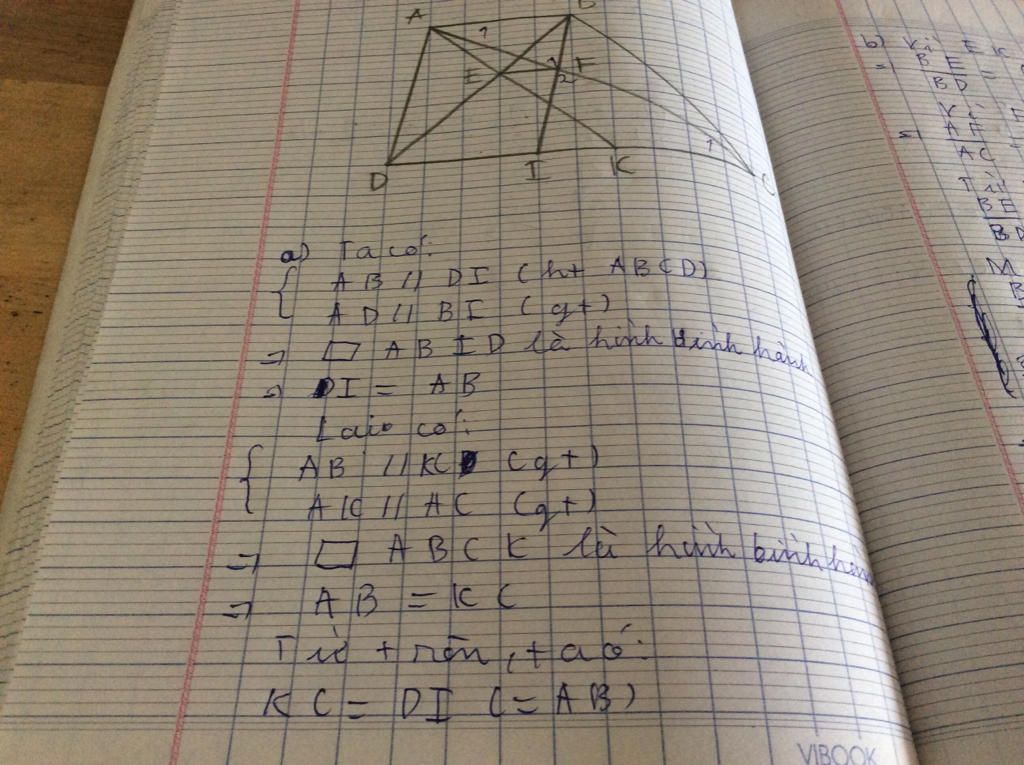 A B
1
E 1 F
2
1
D I K C
a) Ta có:
AB // DI (ht ABCD)
AD // BI (gt)
=> ▱ ABID là hình bình hành
=> DI = AB
Lại có:
AB // KC (gt)
AK // AC (gt)
=> ▱ ABCK là hình bình hàn
=> AB = KC
Từ trên, ta có:
KC = DI (= AB)
VIBOOK
b) Vì EK
= BE =
BD
Vì F
= AF
AC
Từ
BE
BD
M
B